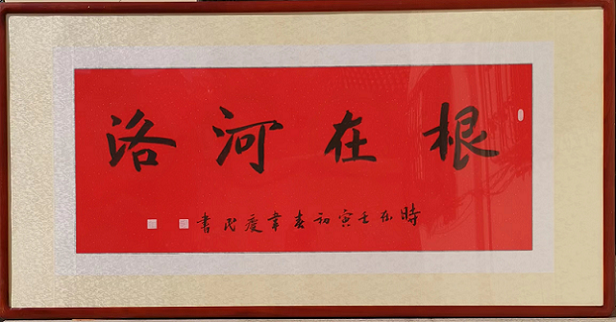 根在河洛
時在壬寅初春韋愛民書